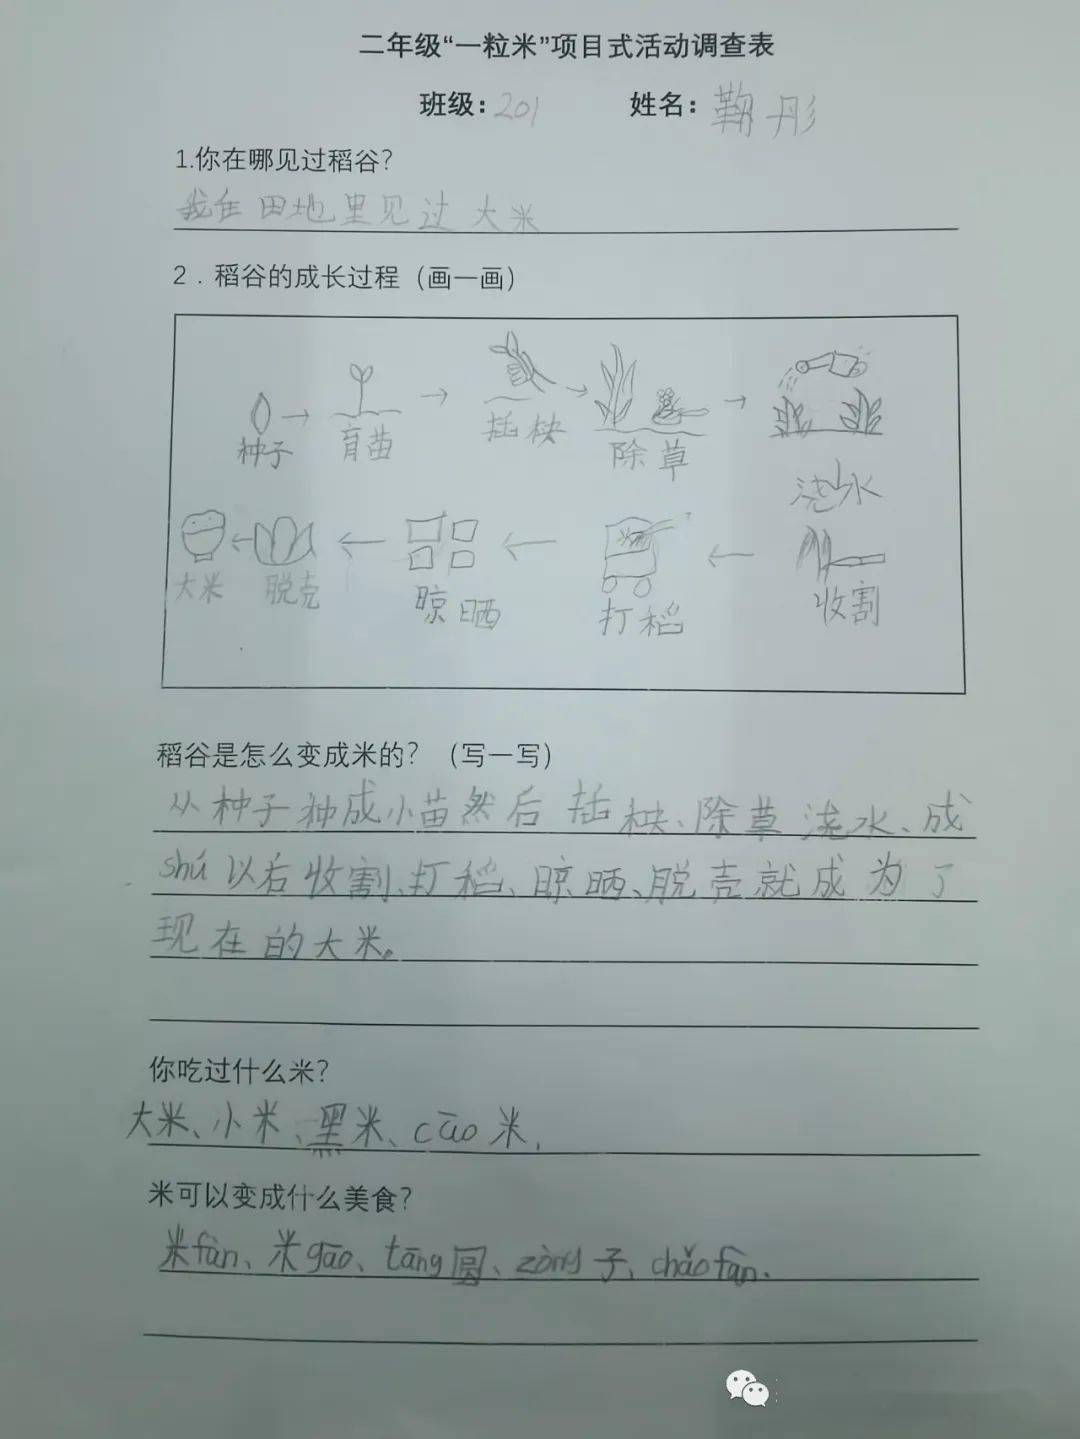 二年级“一粒米”项目式活动调查表
班级：201 姓名：鞠彤
1.你在哪见过稻谷？
我在田地里见过大米
2．稻谷的成长过程（画一画）
种子 育苗 插秧 除草 浇水
大米 脱壳 晾晒 打稻 收割
稻谷是怎么变成米的？（写一写）
从种子种成小苗然后插秧、除草浇水、成
shú以后收割、打稻、晾晒、脱壳就成为了
现在的大米。
你吃过什么米？
大米、小米、黑米、cāo米.
米可以变成什么美食？
米fàn、米gāo、tāng圆、zòng子、chǎofàn.